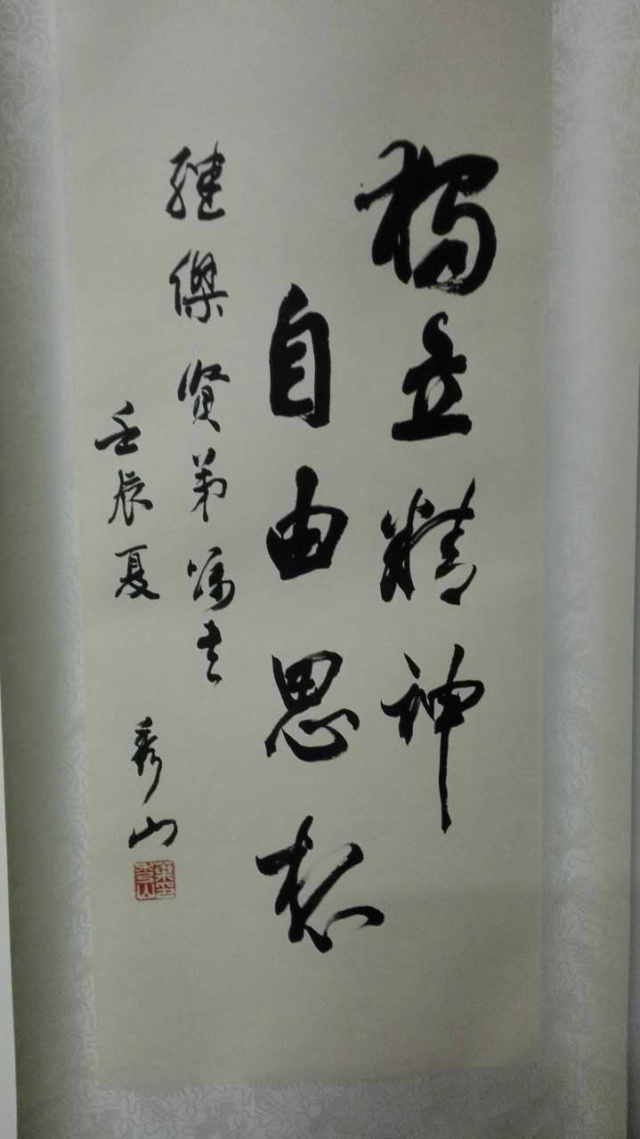 獨立精神
自由思想
继傑贤弟嘱书
壬辰夏 秀山